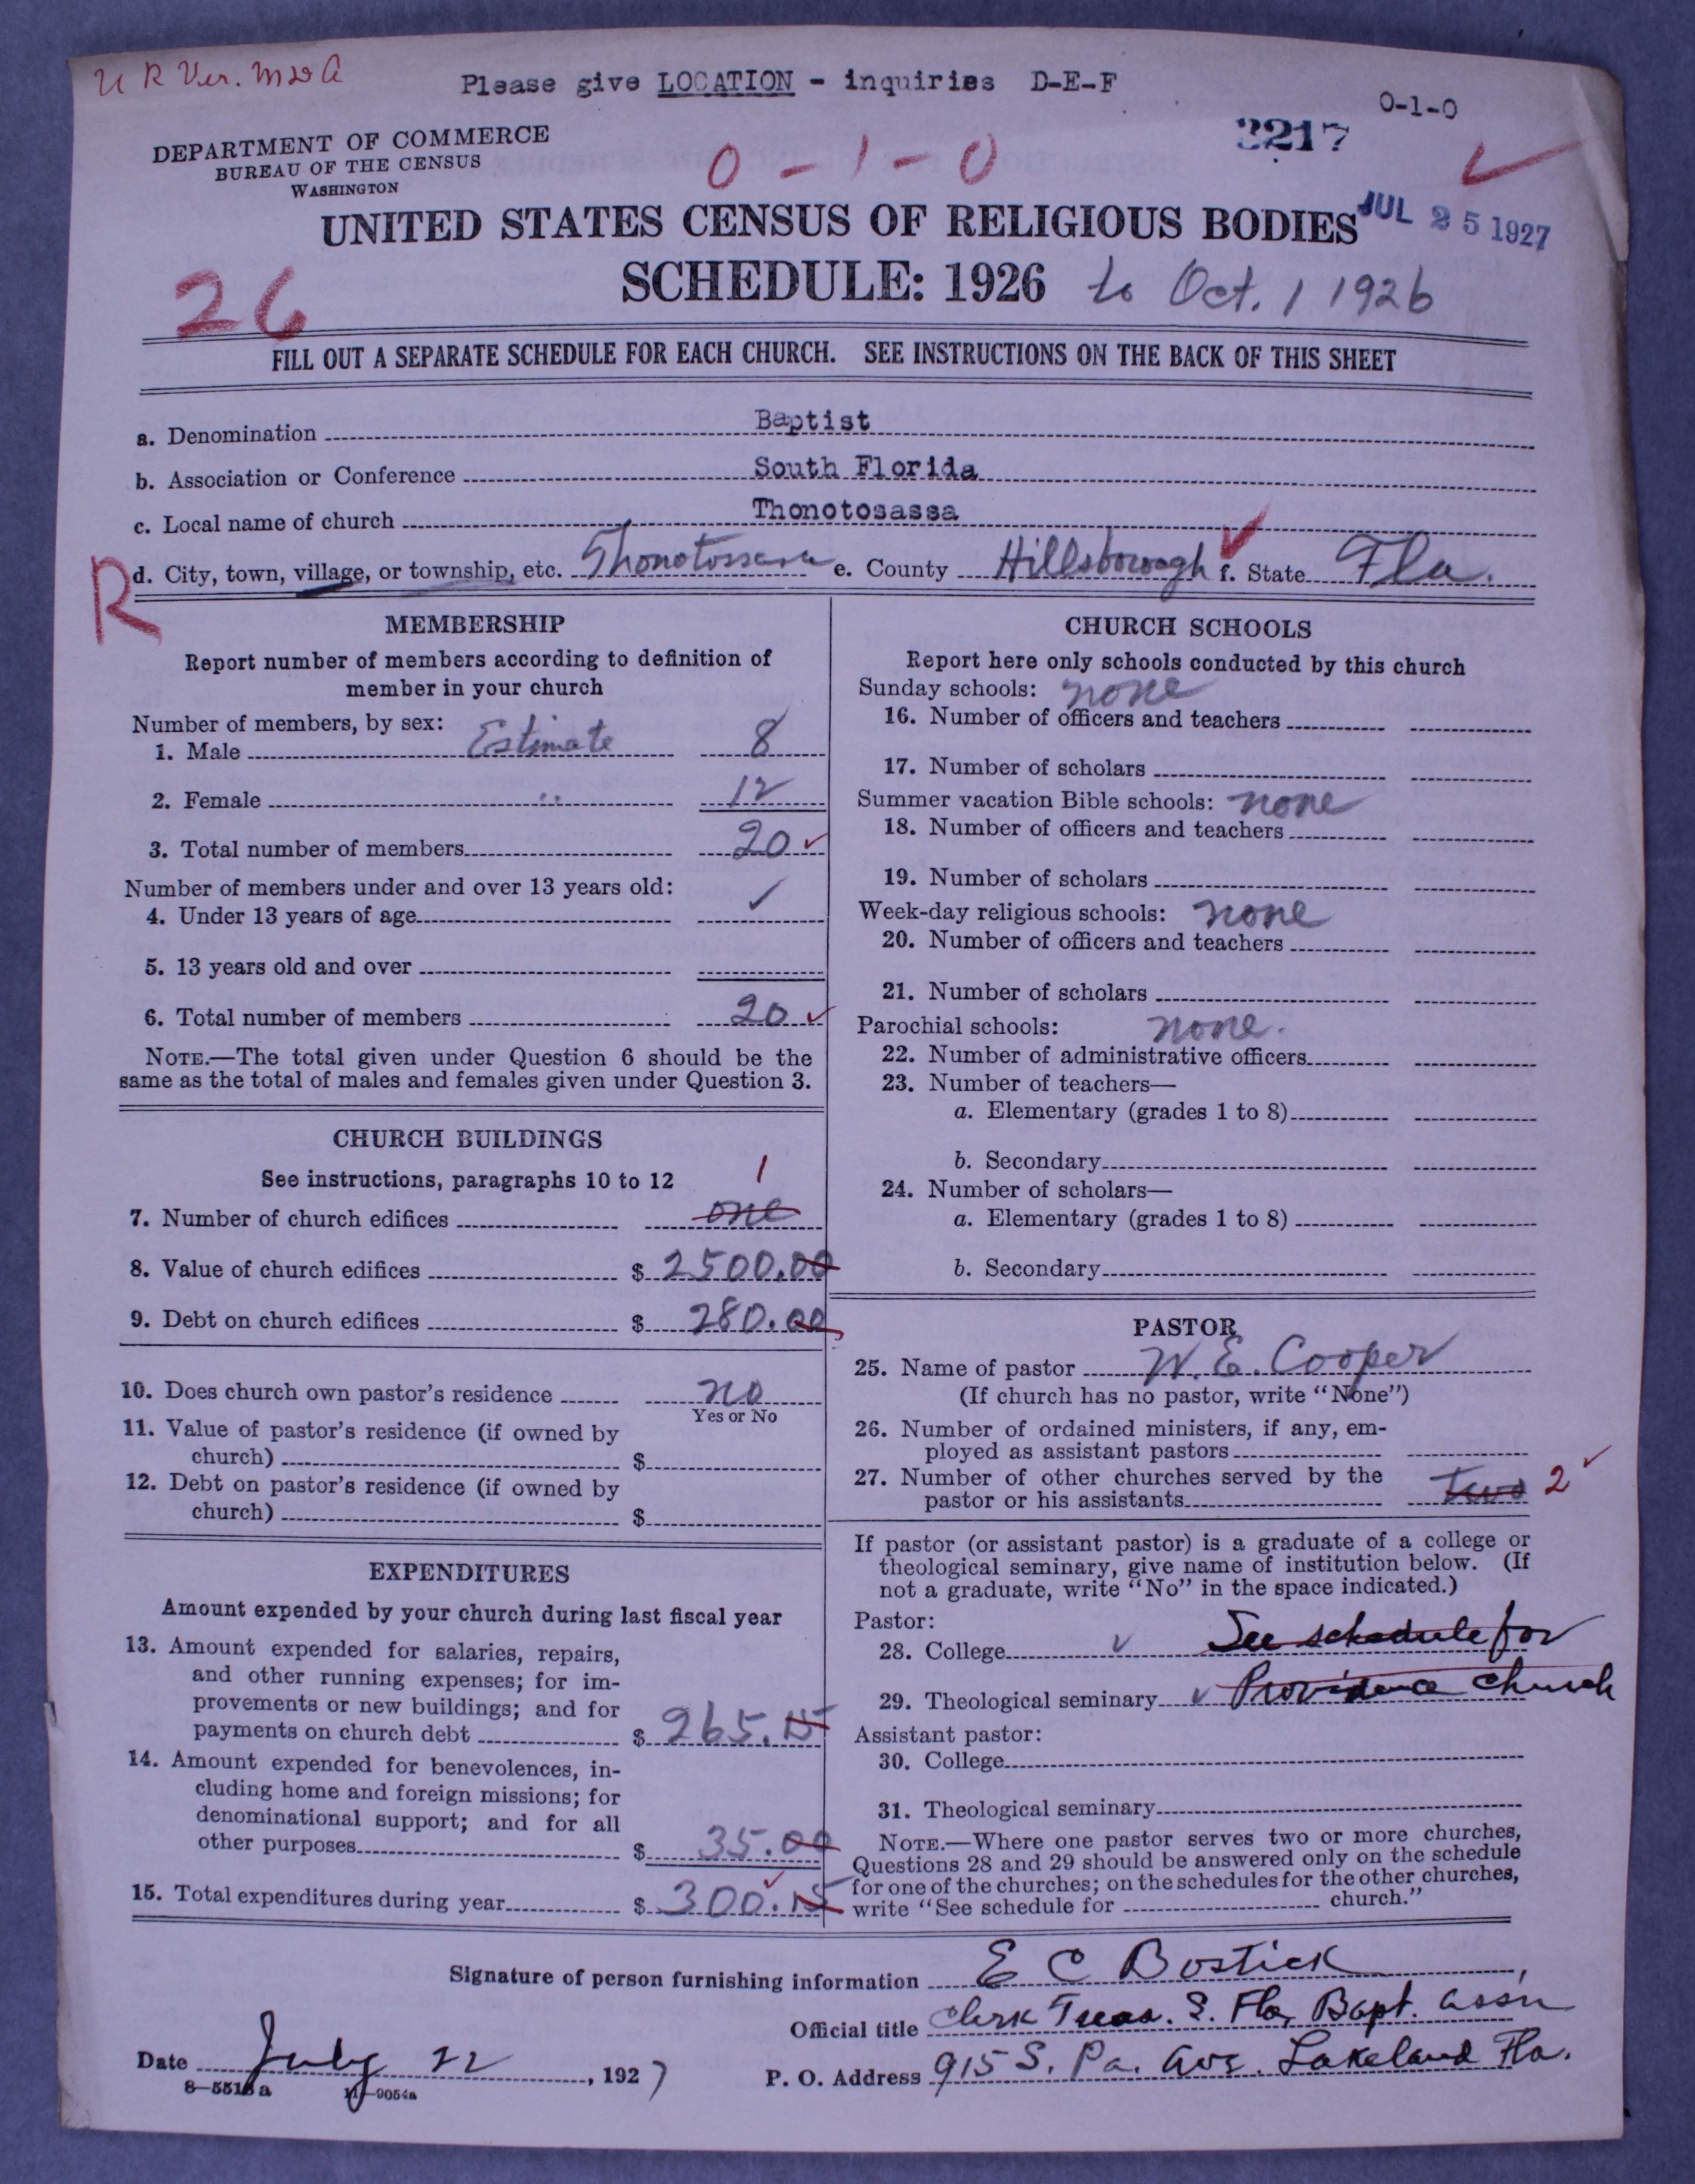 U R Ver. M&A
Please give LOCATION - inquiries D-E-F
0-1-0
DEPARTMENT OF COMMERCE
BUREAU OF THE CENSUS
WASHINGTON
0 - 1 - 0
2217
UNITED STATES CENSUS OF RELIGIOUS BODIES
JUL 25 1927
26
SCHEDULE: 1926 to Oct. 1 1926
FILL OUT A SEPARATE SCHEDULE FOR EACH CHURCH. SEE INSTRUCTIONS ON THE BACK OF THIS SHEET
a. Denomination Baptist
b. Association or Conference South Florida
c. Local name of church Thonotosassa
R
d. City, town, village, or township, etc. Thonotossasa e. County Hillsborough f. State Fla.
MEMBERSHIP
Report number of members according to definition of
member in your church
Number of members, by sex:
1. Male Estimate 8
2. Female " 12
3. Total number of members 20
Number of members under and over 13 years old:
4. Under 13 years of age
5. 13 years old and over
6. Total number of members 20
NOTE.—The total given under Question 6 should be the
same as the total of males and females given under Question 3.
CHURCH BUILDINGS
See instructions, paragraphs 10 to 12
1
7. Number of church edifices one
8. Value of church edifices $ 2500.00
9. Debt on church edifices $ 280.00
10. Does church own pastor's residence no
Yes or No
11. Value of pastor's residence (if owned by
church) $
12. Debt on pastor's residence (if owned by
church) $
EXPENDITURES
Amount expended by your church during last fiscal year
13. Amount expended for salaries, repairs,
and other running expenses; for im-
provements or new buildings; and for
payments on church debt $ 265.15
14. Amount expended for benevolences, in-
cluding home and foreign missions; for
denominational support; and for all
other purposes $ 35.00
15. Total expenditures during year $ 300.15
CHURCH SCHOOLS
Report here only schools conducted by this church
Sunday schools: none
16. Number of officers and teachers
17. Number of scholars
Summer vacation Bible schools: none
18. Number of officers and teachers
19. Number of scholars
Week-day religious schools: none
20. Number of officers and teachers
21. Number of scholars
Parochial schools: none.
22. Number of administrative officers
23. Number of teachers—
a. Elementary (grades 1 to 8)
b. Secondary
24. Number of scholars—
a. Elementary (grades 1 to 8)
b. Secondary
PASTOR
25. Name of pastor W. E. Cooper
(If church has no pastor, write "None")
26. Number of ordained ministers, if any, em-
ployed as assistant pastors
27. Number of other churches served by the
pastor or his assistants two 2
If pastor (or assistant pastor) is a graduate of a college or
theological seminary, give name of institution below. (If
not a graduate, write "No" in the space indicated.)
Pastor:
28. College See schedule for
29. Theological seminary Providence church
Assistant pastor:
30. College
31. Theological seminary
NOTE.—Where one pastor serves two or more churches,
Questions 28 and 29 should be answered only on the schedule
for one of the churches; on the schedules for the other churches,
write "See schedule for church."
Signature of person furnishing information E C Bostick
Official title Clerk Treas. S. Fla, Bapt. Assn
Date July 22, 1927
P. O. Address 915 S. Pa. Ave. Lakeland Fla.
8-5518a
11-9054a